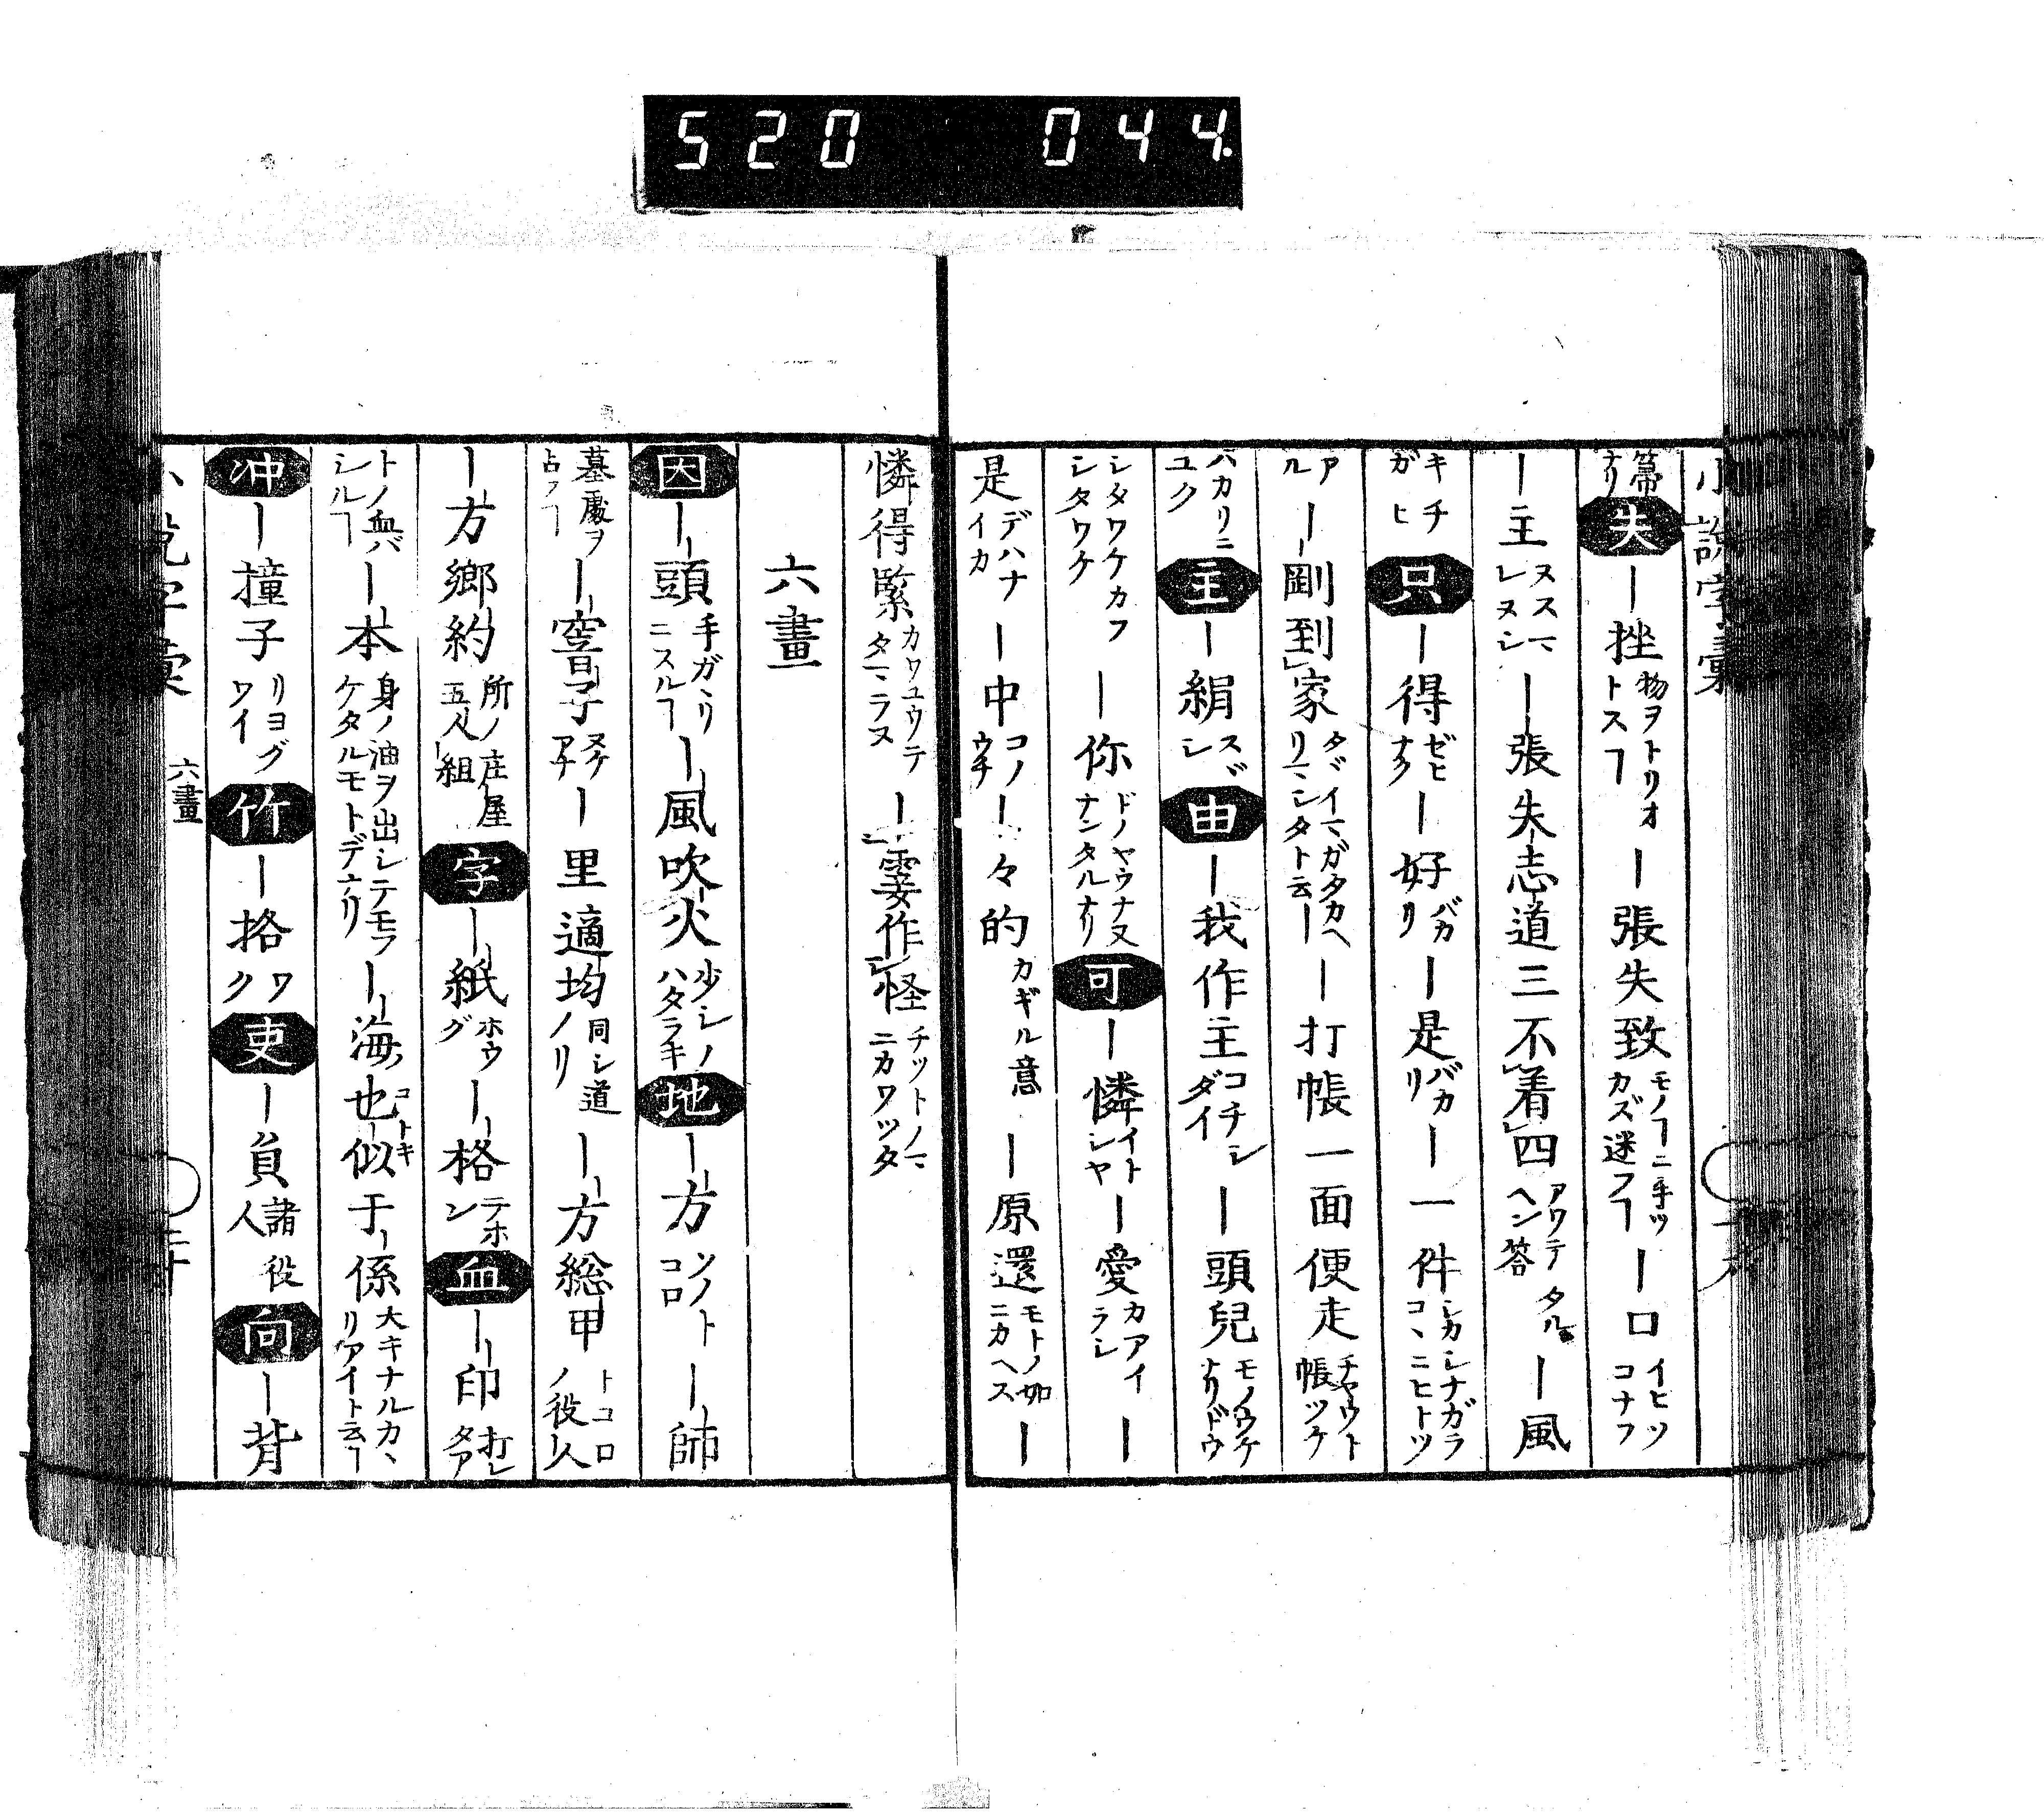 520 044.
小説字彙
箒ナリ 失 ー挫 物ヲトリオトスヿ ー張失致 モノヿニ手ツカズ迷フヿ ー口 イヒソコナフ
ー主 ヌスマレヌシ ー張失志道三不着四 アワテタルヘン答 ー風
キチガヒ 只 ー得 ゼヒナク ー好 バカリ ー是 バカリ ー一件 シカシナガラコヽニヒトツ
アル ー剛到家 タヾイマガタカヘリマシタト云 ー打帳一面便走 チヤウト帳ツケ
バカリニユク 主 ー絹 スヾシ 由 ー我作主 コチシダイ ー頭兒 モノウケナリドウ
シタワケカフシタワケ ー你 ドノヤウナヌナンタルナリ 可 ー憐 イトシヤ ー愛 カアイラシ ー
是 デハナイカ ー中 コノウチ ー々的 カギル意 ー原還 モトノ如ニカヘス ー
憐得緊 カワユウテタマラヌ ー要作怪 チツトノマニカワツタ
六畫
因 ー頭 手ガヽリニスルヿ ー風吹火 少シノハタラキ 地 ー方 ソノトコロ ー師
墓處ヲ占フヿ ー窨子 ヌケアナ ー里適均 同シ道ノリ ー方総甲 トコロノ役人
ー方鄉約 所ノ庄屋五人組 字 ー紙 ホウグ ー格 テホン 血 ー印
トノ無バシルヿ ー本 身ノ油ヲ出シテモフケタルモトデナリ ー海也似 コトキ 于係 大キナルカヽリアイト云ヿ
冲 ー撞子 リヨグワイ 竹 ー格 ワク 吏 ー負 諸役人 向 ー背
六畫